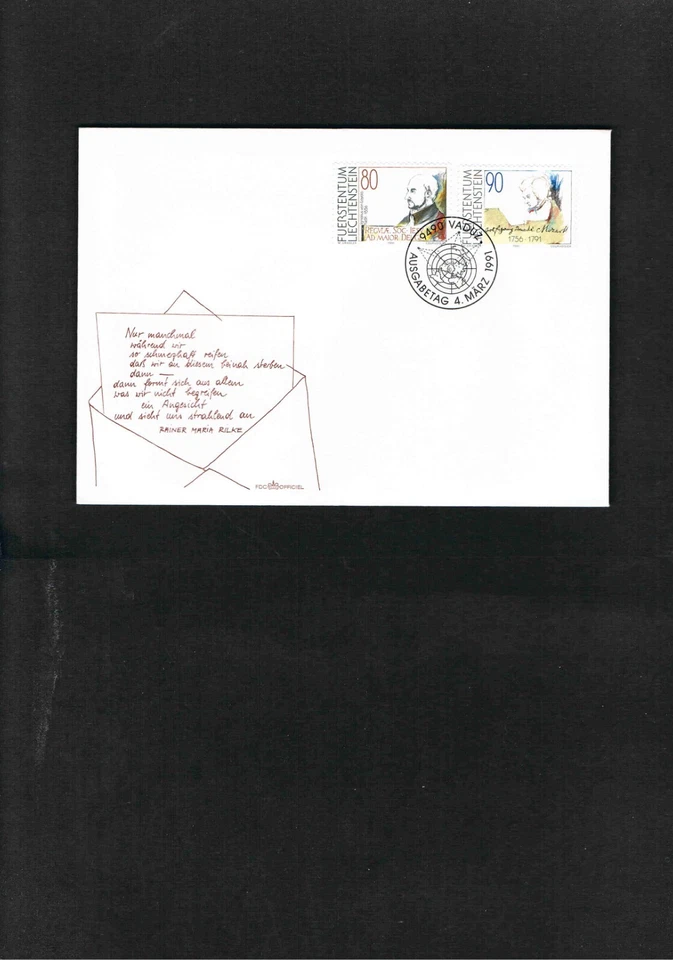 FUERSTENTUM
LIECHTENSTEIN
80
REGULÆ SOC. IES
AD MAIOR. DEI
FUERSTENTUM
LIECHTENSTEIN
90
Wolfgang Amadé Mozart
1756 - 1791
9490 VADUZ
AUSGABETAG 4. MÄRZ 1991
Nur manchmal
während wir
so schmerzhaft reifen
daß wir an diesem beinah sterben
dann —
dann formt sich aus allem
was wir nicht begreifen
ein Angesicht
und sieht uns strahlend an
RAINER MARIA RILKE
FDC OFFICIEL